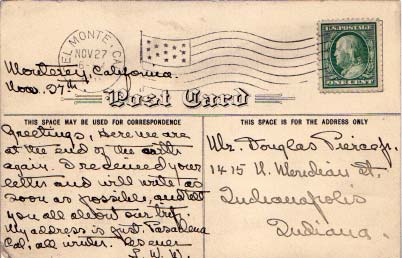 DEL MONTE, CA
NOV 27
U.S. POSTAGE
ONE CENT
Monterey, California.
Nov. 27th,
Post Card
THIS SPACE MAY BE USED FOR CORRESPONDENCE
THIS SPACE IS FOR THE ADDRESS ONLY
Greetings, Here we are
at the end of the earth
again. I received your
letter and will write as
soon as possible, and tell
you all about our trip.
My address is just Pasadena
Cal, all winter. As ever
L. W. W.
Mr. Douglas Pierce Jr.
1415 N. Meridian St.
Indianapolis
Indiana.